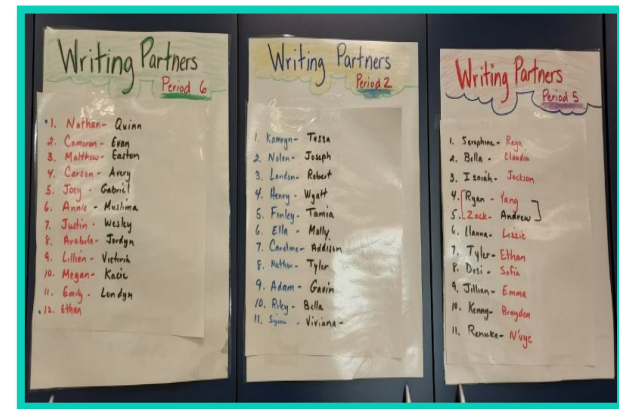 Writing Partners
Period 6
1. Nathan - Quinn
2. Cameron - Evan
3. Matthew - Easton
4. Carson - Avery
5. Joey - Gabriel
6. Annie - Muslima
7. Justin - Wesley
8. Arabela - Jordyn
9. Lillian - Victoria
10. Megan - Kacie
11. Emily - Londyn
12. Ethan
Writing Partners
Period 2
1. Kamryn - Tessa
2. Nolan - Joseph
3. Landon - Robert
4. Henry - Wyatt
5. Finley - Tamia
6. Ella - Molly
7. Caroline - Addison
8. Nathan - Tyler
9. Adam - Gavin
10. Riley - Bella
11. - Viviana -
Writing Partners
Period 5
1. Seraphina -
2. Bella - Claudia
3. Isaiah - Jackson
4. Ryan - Yang
5. Zack - Andrew
6. Ilanna - Lizzie
7. Tyler - Ethan
8. Desi - Sofia
9. Jillian - Emma
10. Kenny - Brayden
11. Renuka - N'vye